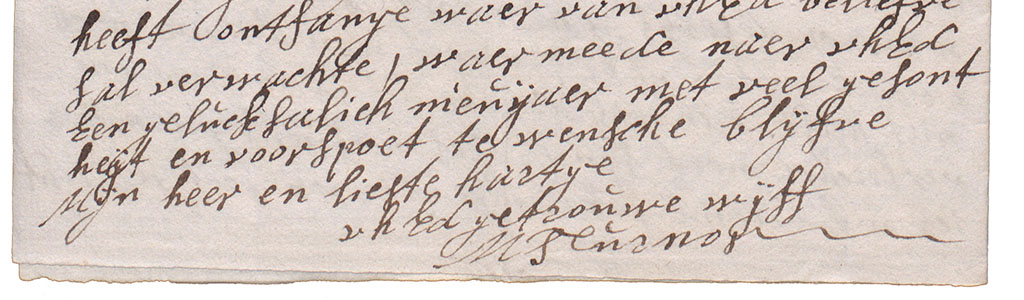 heeft ontfange waer van vhEd beliefve
sal verwachte, waer meede naer vhEd
Een gelucksalich nieuyaer met veel gesont
heyt en voorspoet te wensche blyfve
Myn heer en liefte hartye
vhEd getrouwe wyff